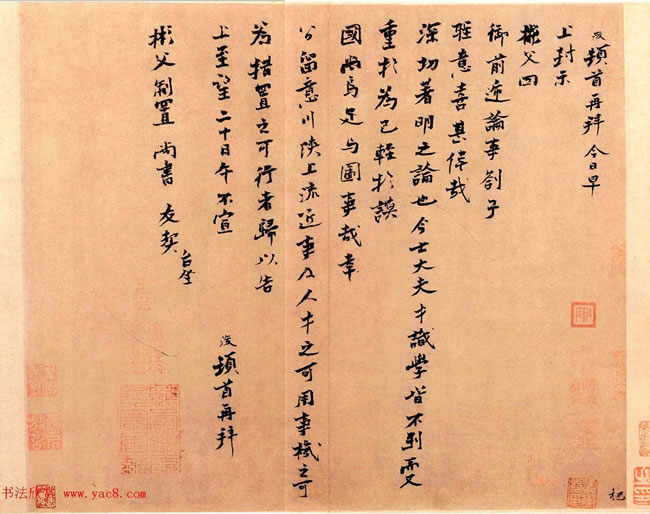 浚頓首再拜 今日早
上封示
彬父回
御前逆論事劄子
聖意喜甚偉哉
深切著明之論也今士大夫才識學皆不到而又
重於為己輕於謀
國焉足與圖事哉幸
公留意川陝上流近事及人才之可用事機之可
為措置之可行者歸以告
上至望二十日午不宣
浚頓首再拜
彬父制置尚書友契台坐
书法欣赏 www.yac8.com